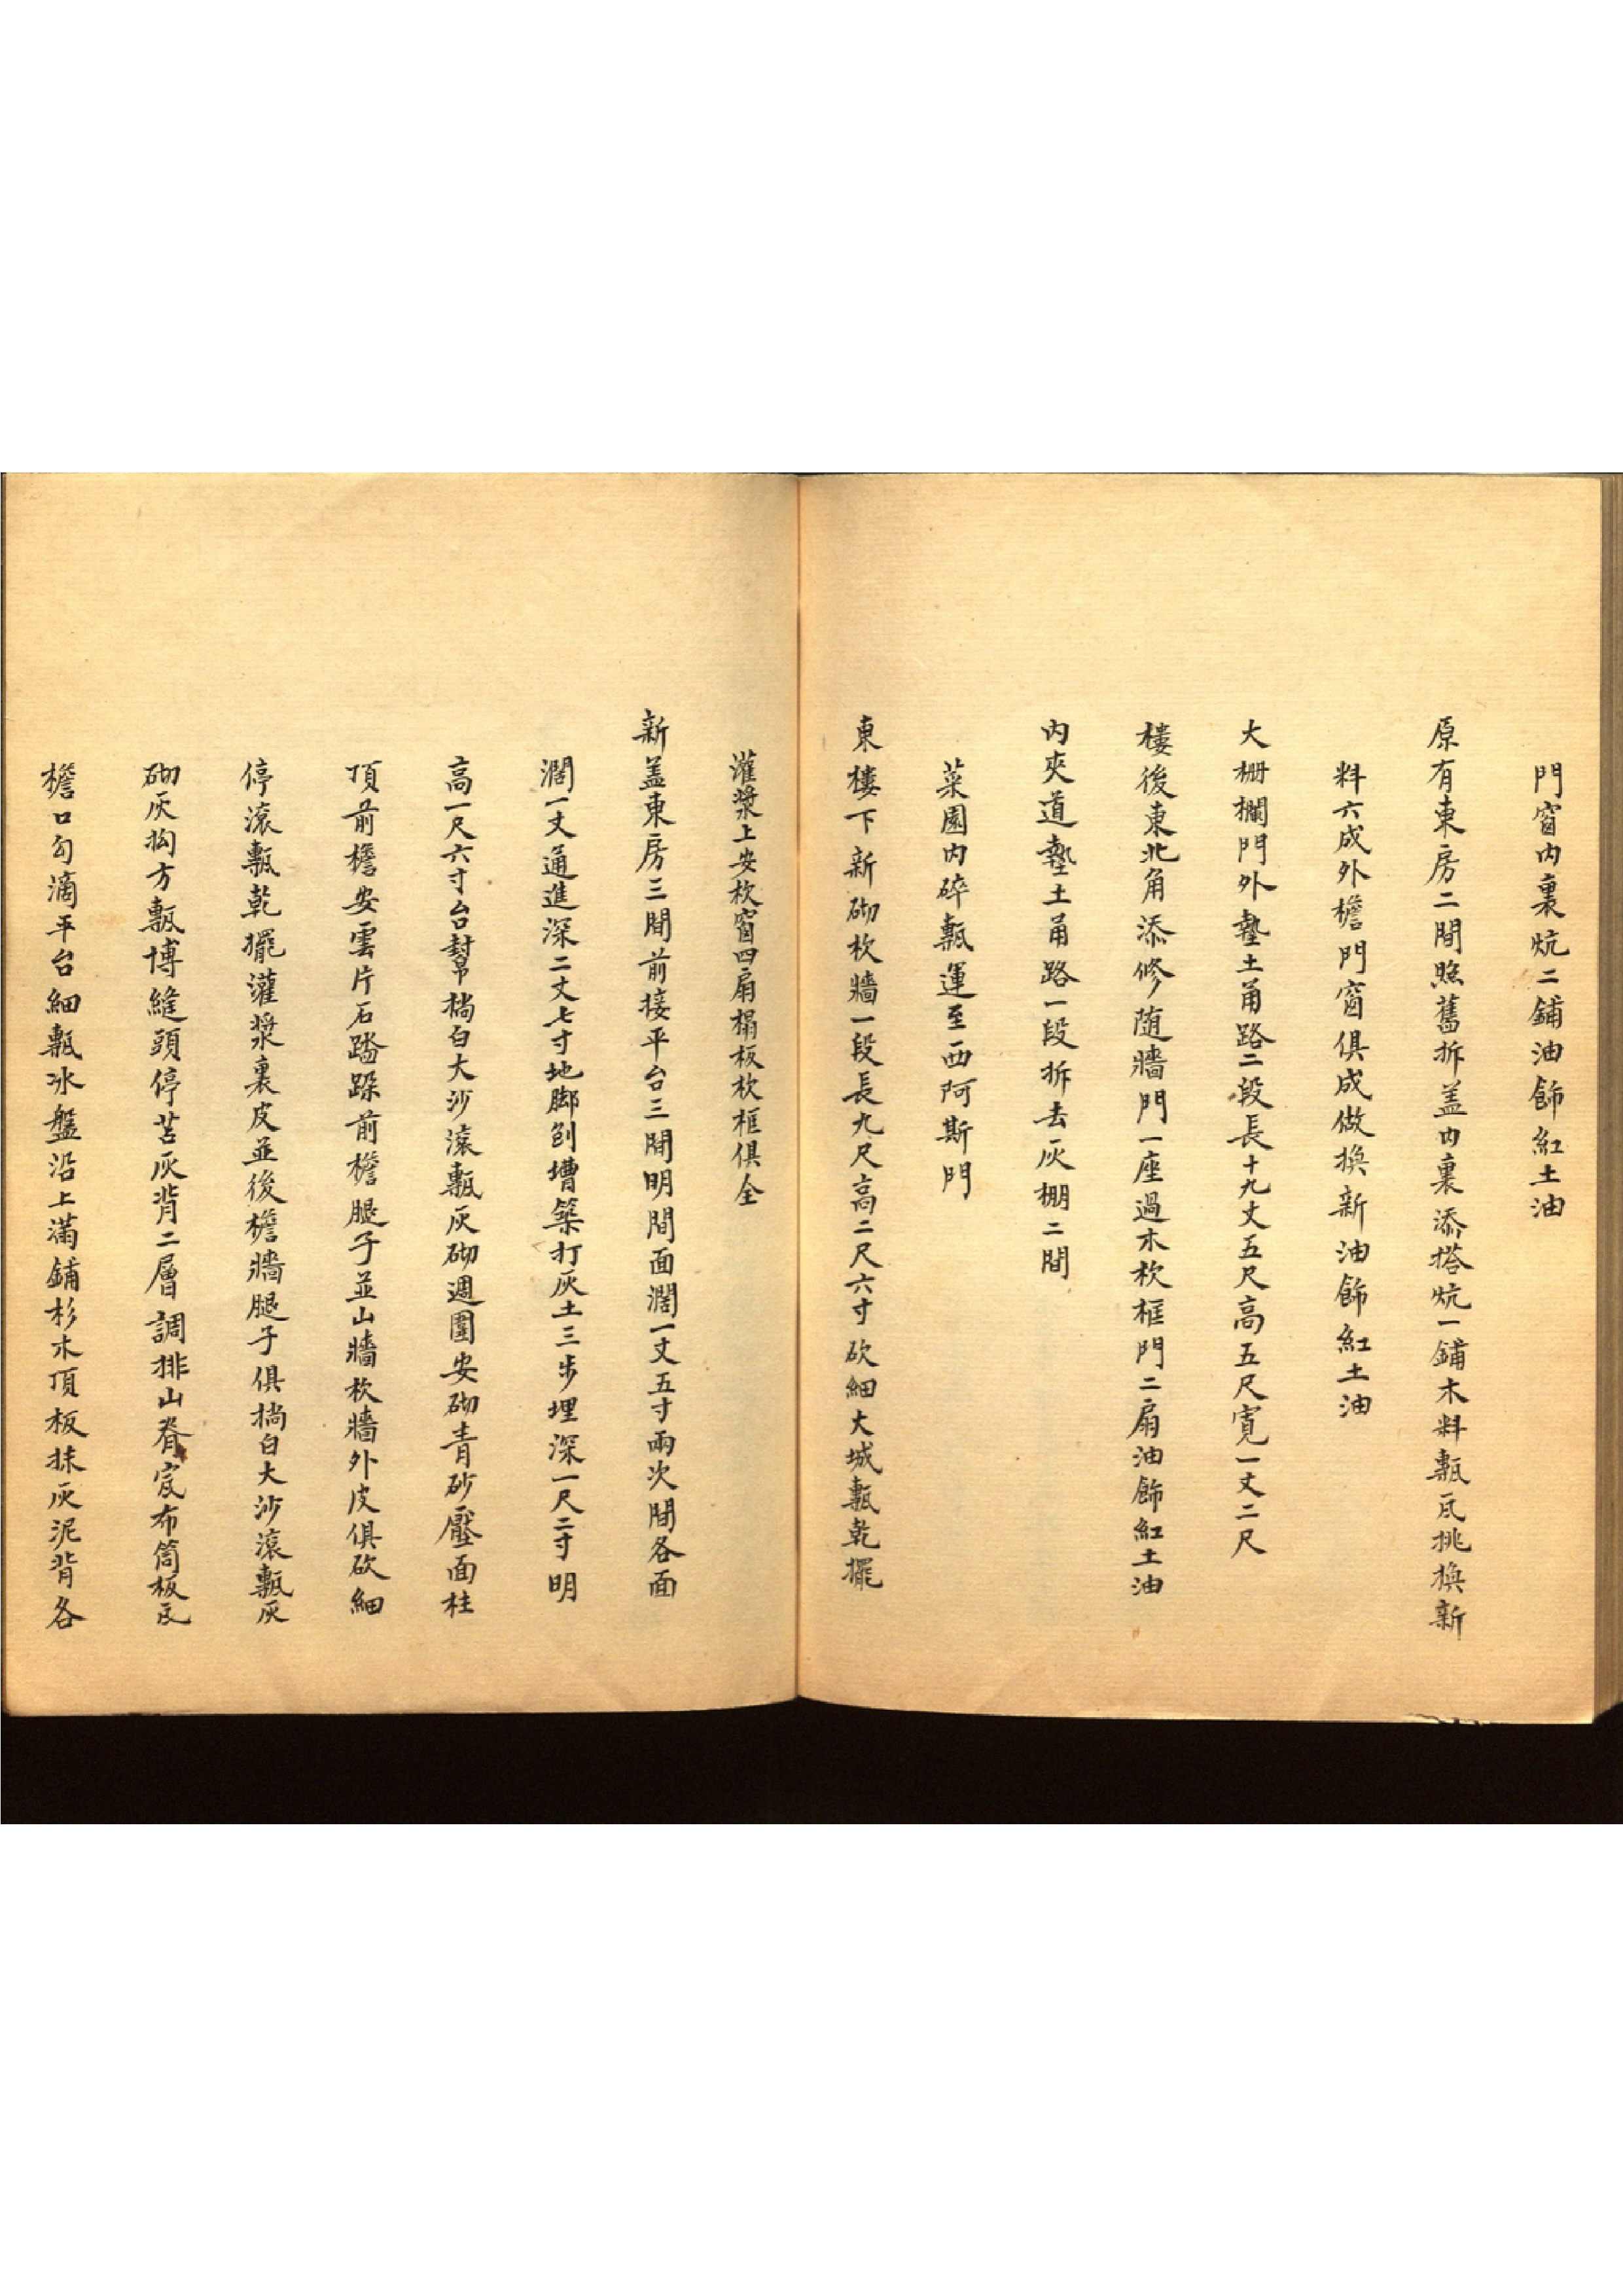 門窗内裏炕二鋪油飾紅土油
原有東房二間照舊拆盖内裏添搭炕一鋪木料甎瓦挑換新
料六成外檐門窗俱成做換新油飾紅土油
大栅欄門外墊土甬路二段長十九丈五尺高五尺寬一丈二尺
樓後東北角添修随牆門一座過木杴框門二扇油飾紅土油
内夾道墊土甬路一段拆去灰棚二間
菜園内碎甎運至西阿斯門
東樓下新砌杴牆一段長九尺高二尺六寸砍細大城甎乾擺
灌漿上安杴窗四扇榻板杴框俱全
新盖東房三間前接平台三間明間面濶一丈五寸兩次間各面
濶一丈通進深二丈七寸地脚刨槽築打灰土三步埋深一尺二寸明
高一尺六寸台幫㨪白大沙滾甎灰砌週圍安砌青砂壓面柱
頂前檐安雲片石踏跺前檐腿子並山牆杴牆外皮俱砍細
停滾甎乾擺灌漿裏皮並後檐牆腿子俱㨪白大沙滾甎灰
砌灰掏方甎博縫頭停苫灰背二層調排山脊宽布筒板瓦
檐口勾滴平台細甎冰盤沿上滿鋪杉木頂板抹灰泥背各